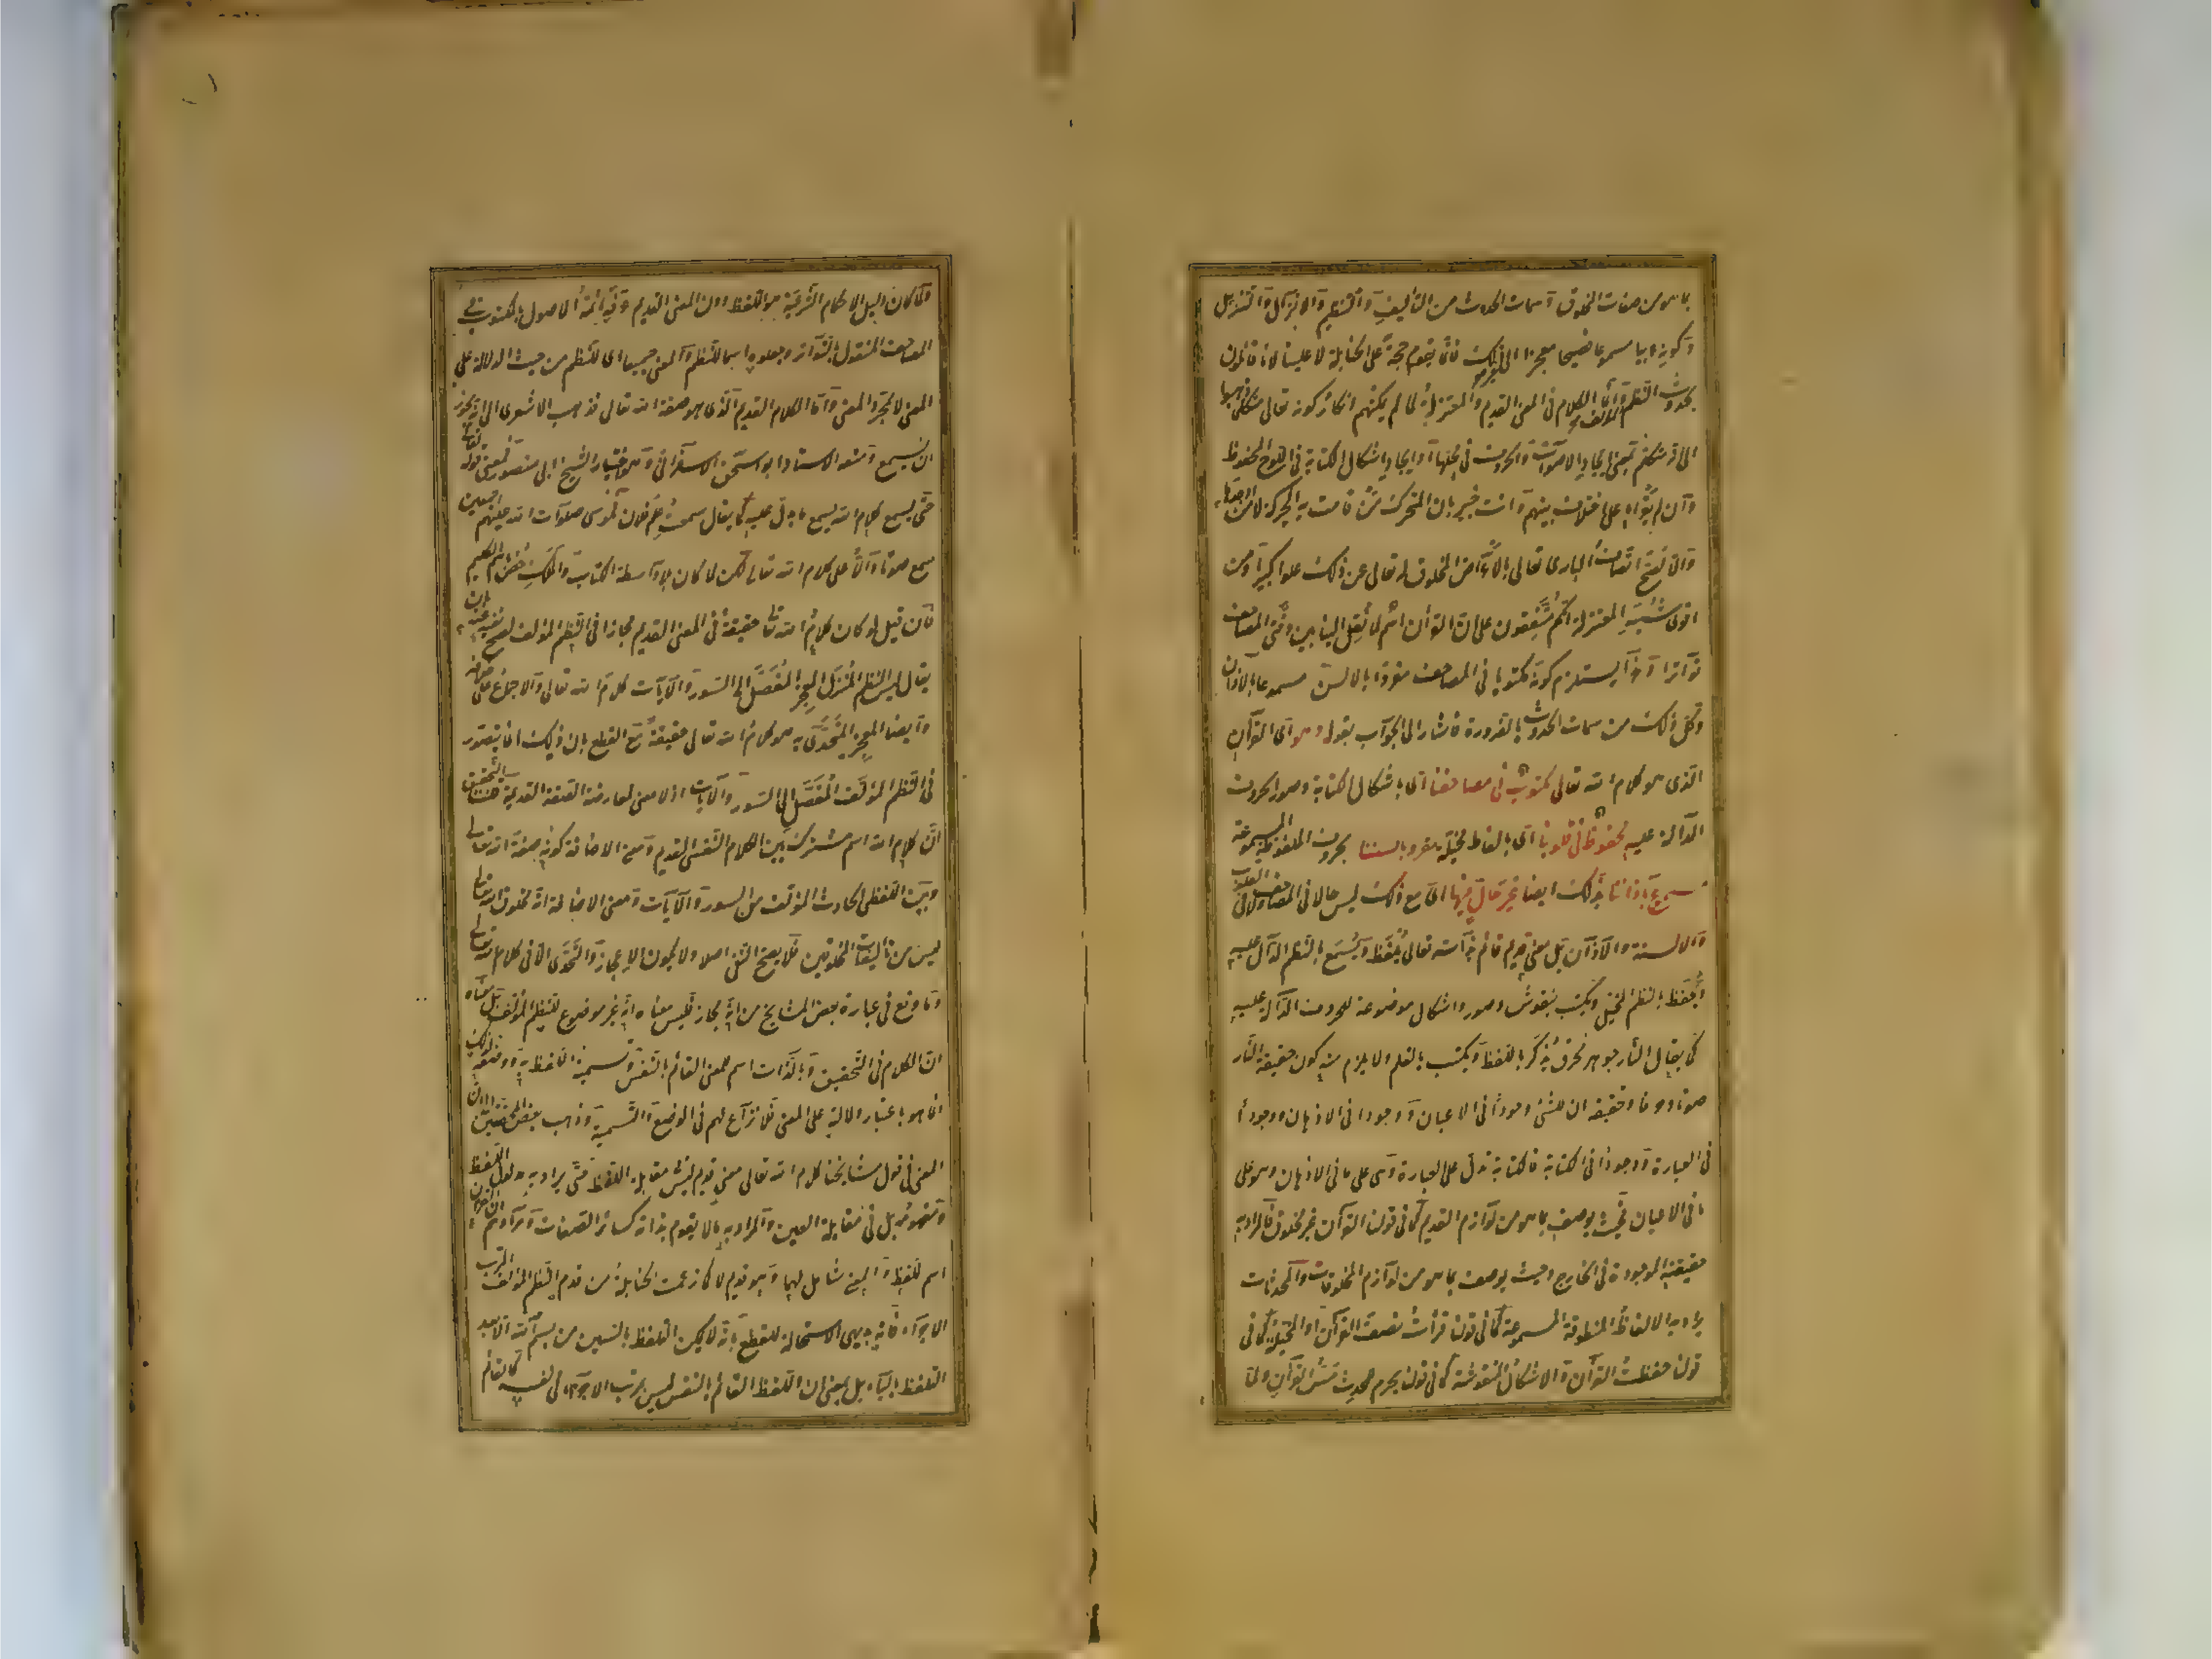 بما هو من صفات المخلوق وسمات الحدوث من التأليف والتنظيم والانزال والتنزيل
وكونه عربيا مسموعا فصيحا معجزا الى غير ذلك فانما يقوم حجة على الحنابلة لا علينا لانا قائلون
بحدوث النظم وانما الكلام فى المعنى القديم والمعتزلة لما لم يمكنهم انكار كونه تعالى متكلما ذهبوا
الى انه متكلم بمعنى ايجاد الاصوات والحروف فى محالها او ايجاد اشكال الكتابة فى اللوح المحفوظ
وان لم يقرأ على اختلاف بينهم وانت خبير بان المتحرك من قامت به الحركة لا من اوجدها
والا لصح اتصاف البارى تعالى بالاعراض المخلوقة له تعالى عن ذلك علوا كبيرا ومن
اقوى شبه المعتزلة انكم متفقون على ان القرآن اسم لما نقل الينا بين دفتى المصاحف
تواترا وهذا يستلزم كونه مكتوبا فى المصاحف مقروا بالالسن مسموعا بالآذان
وكل ذلك من سمات الحدوث بالضرورة فاشار الى الجواب بقوله وهو اى القرآن
الذى هو كلام الله تعالى مكتوب فى مصاحفنا اى باشكال الكتابة وصور الحروف
الدالة عليه محفوظ فى قلوبنا اى بالفاظ مخيلة مقرو بالسنتنا بحروفه الملفوظة المسموعة
مسموع بآذاننا بذلك ايضا غير حال فيها اى مع ذلك ليس حالا فى المصاحف ولا فى القلوب
والالسنة والآذان بل معنى قديم قائم بذات الله تعالى يلفظ ويسمع بالنظم الدال عليه
ويحفظ بالنظم المخيل ويكتب بنقوش وصور واشكال موضوعة للحروف الدالة عليه
كما يقال النار جوهر محرق يذكر باللفظ ويكتب بالقلم ولا يلزم منه كون حقيقة النار
صوتا وحرفا وتحقيقه ان للشئ وجودا فى الاعيان ووجودا فى الاذهان ووجودا
فى العبارة ووجودا فى الكتابة فالكتابة تدل على العبارة وهى على ما فى الاذهان وهو على
ما فى الاعيان فحيث يوصف بما هو من لوازم القديم كما فى قولنا القرآن غير مخلوق فالمراد به
حقيقته الموجودة فى الخارج وحيث يوصف بما هو من لوازم المخلوقات والمحدثات
يراد به الالفاظ المنطوقة المسموعة كما فى قولنا قرأت نصف القرآن او المخيلة كما فى
قولنا حفظت القرآن والاشكال المنقوشة كما فى قولنا يحرم للمحدث مس القرآن ولما
ولما كان دليل الاحكام الشرعية هو اللفظ دون المعنى القديم عرفه ائمة الاصول بالمكتوب فى
المصاحف المنقول بالتواتر وجعلوه اسما للنظم والمعنى جميعا اى للنظم من حيث الدلالة على
المعنى لا لمجرد المعنى واما الكلام القديم الذى هو صفة الله تعالى فذهب الاشعرى الى انه يجوز
ان يسمع ومنعه الاستاذ ابو اسحق الاسفراينى وهو اختيار الشيخ ابى منصور فمعنى قوله تعالى
حتى يسمع كلام الله يسمع ما يدل عليه كما يقال سمعت علم فلان فموسى صلوات الله عليهم اجمعين
سمع صوتا دالا على كلام الله تعالى لكن لما كان بلا واسطة الكتاب والملك خص باسم الكليم
فان قيل لو كان كلام الله تعالى حقيقة فى المعنى القديم مجازا فى النظم المؤلف لصح نفيه عنه بان
يقال ليس النظم المنزل المعجز المفصل الى السور والآيات كلام الله تعالى والاجماع على خلافه
وايضا المعجز المتحدى به هو كلام الله تعالى حقيقة مع القطع بان ذلك انما يتصور
فى النظم المؤلف المفصل الى السور والآيات اذ لا معنى لمعارضة الصفة القديمة قلنا التحقيق
ان كلام الله اسم مشترك بين الكلام النفسى القديم ومعنى الاضافة كونه صفة الله تعالى
وبين اللفظى الحادث المؤلف من السور والآيات ومعنى الاضافة انه مخلوق الله تعالى
ليس من تأليفات المخلوقين فلا يصح النفى اصلا ولا يكون الاعجاز والتحدى الا فى كلام الله تعالى
وما وقع فى عبارة بعض المشايخ من انه مجاز فليس معناه انه غير موضوع للنظم المؤلف بل معناه
ان الكلام فى التحقيق وبالذات اسم للمعنى القائم بالنفس وتسمية اللفظ به ووضعه لذلك
انما هو باعتبار دلالته على المعنى فلا نزاع لهم فى الوضع والتسمية وذهب بعض المحققين الى ان
المعنى فى قول مشايخنا كلام الله تعالى معنى قديم ليس مقابلة اللفظ حتى يراد به مدلول اللفظ
ومفهومه بل فى مقابلة العين والمراد به ما لا يقوم بذاته كسائر الصفات ومرادهم ان القرآن
اسم للفظ والمعنى شامل لهما وهو قديم لا كما زعمت الحنابلة من قدم النظم المؤلف المرتب
الاجزاء فانه بديهى الاستحالة للقطع بانه لا يمكن التلفظ بالسين من بسم الله الا بعد
التلفظ بالباء بل بمعنى ان اللفظ القائم بالنفس ليس مرتب الاجزاء فى نفسه كالقائم